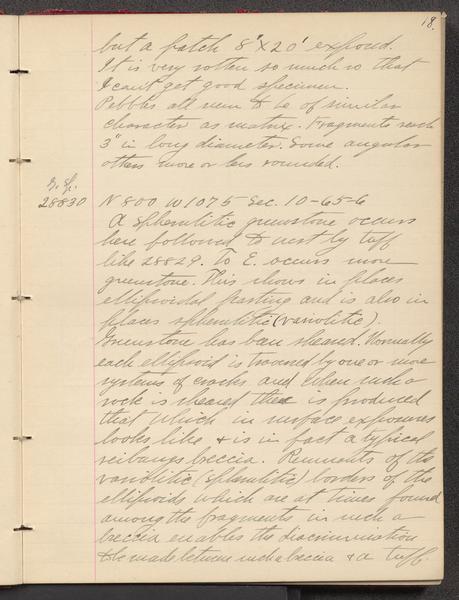 18.
but a patch 8' x 20' exposed.
It is very rotten so much so that
I cant get good specimen.
Pebbles all seem to be of similar
character as matrix. Fragments reach
3" in long diameter. Some angular
others more or less rounded.
28830 N 800 W 1075 - Sec. 10-65-6
A spherulitic greenstone occurs
here followed to west by tuff
like 28829. To E. occurs more
greenstone. This shows in places
ellipsoidal parting and is also in
places spherulitic (variolitic).
Greenstone has been sheared. Normally
each ellipsoid is traversed by one or more
systems of cracks and when such a
rock is sheared there is produced
that which in surface exposures
looks like & is in fact a typical
reibungs breccia. Remnants of the
variolitic (spherulitic) borders of the
ellipsoids which are at times found
among the fragments in such a
breccia enables the discrimination
to be made between such a breccia & a tuff.